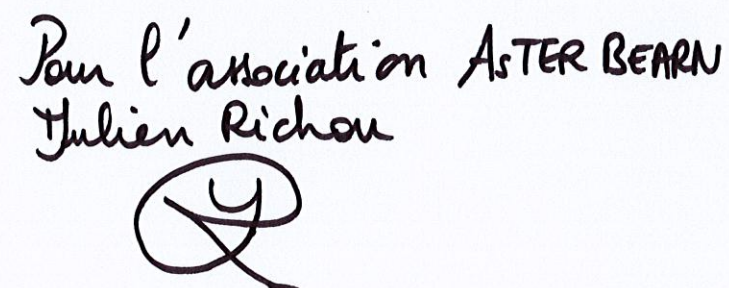 Pour l'association ASTER BEARN
Julien Richou